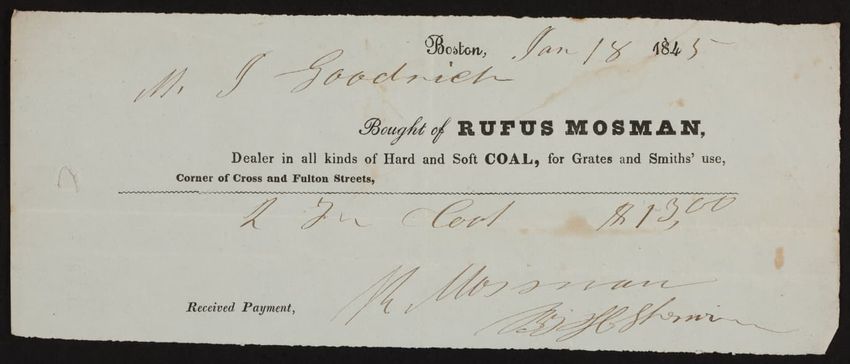 Boston, Jan 18 1845
M. I Goodrich
Bought of RUFUS MOSMAN,
Dealer in all kinds of Hard and Soft COAL, for Grates and Smiths' use,
Corner of Cross and Fulton Streets,
2 Tn Cool $13,00
Received Payment, R Mosman